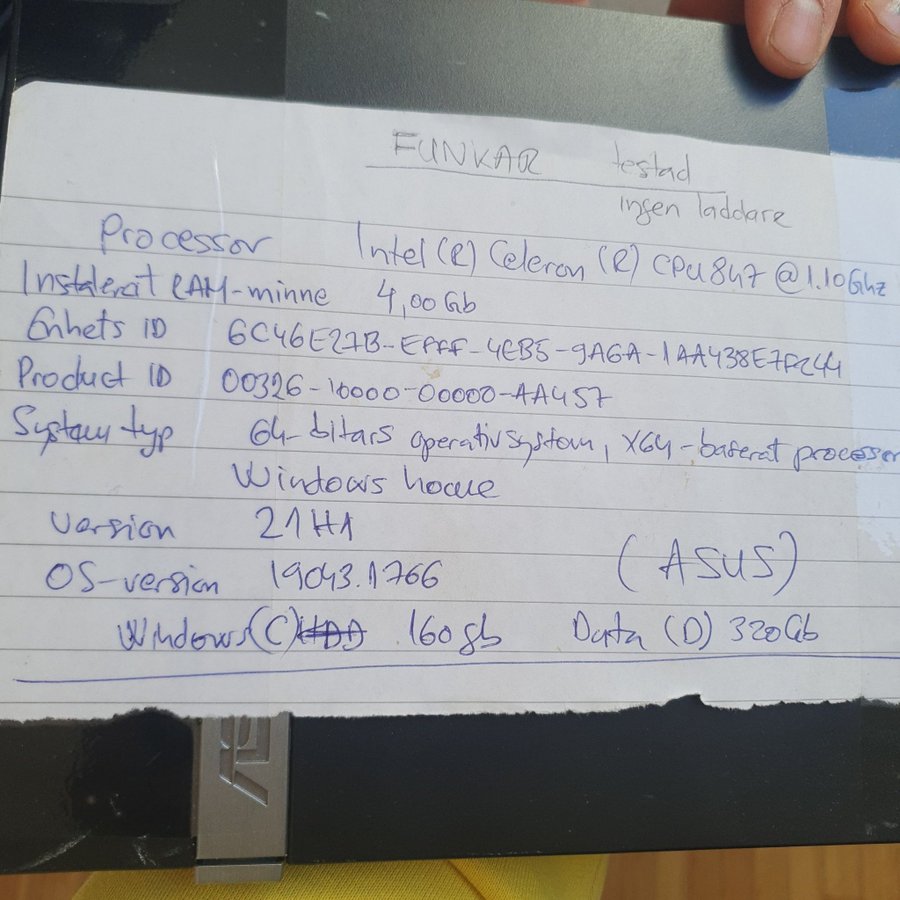 FUNKAR testad
ingen laddare
Processor Intel (R) Celeron (R) CPU 847 @ 1.10Ghz
Instalerat RAM-minne 4,00Gb
Enhets ID 6C46E27B-EFFF-4EB5-9A6A-1AA438E7F244
Product ID 00326-10000-00000-AA457
System typ 64-bitars operativsystem, X64-baserat processor
Windows home
Version 21H1
OS-version 19043.1766
(ASUS)
Windows (C) HDD 160gb Data (D) 320Gb